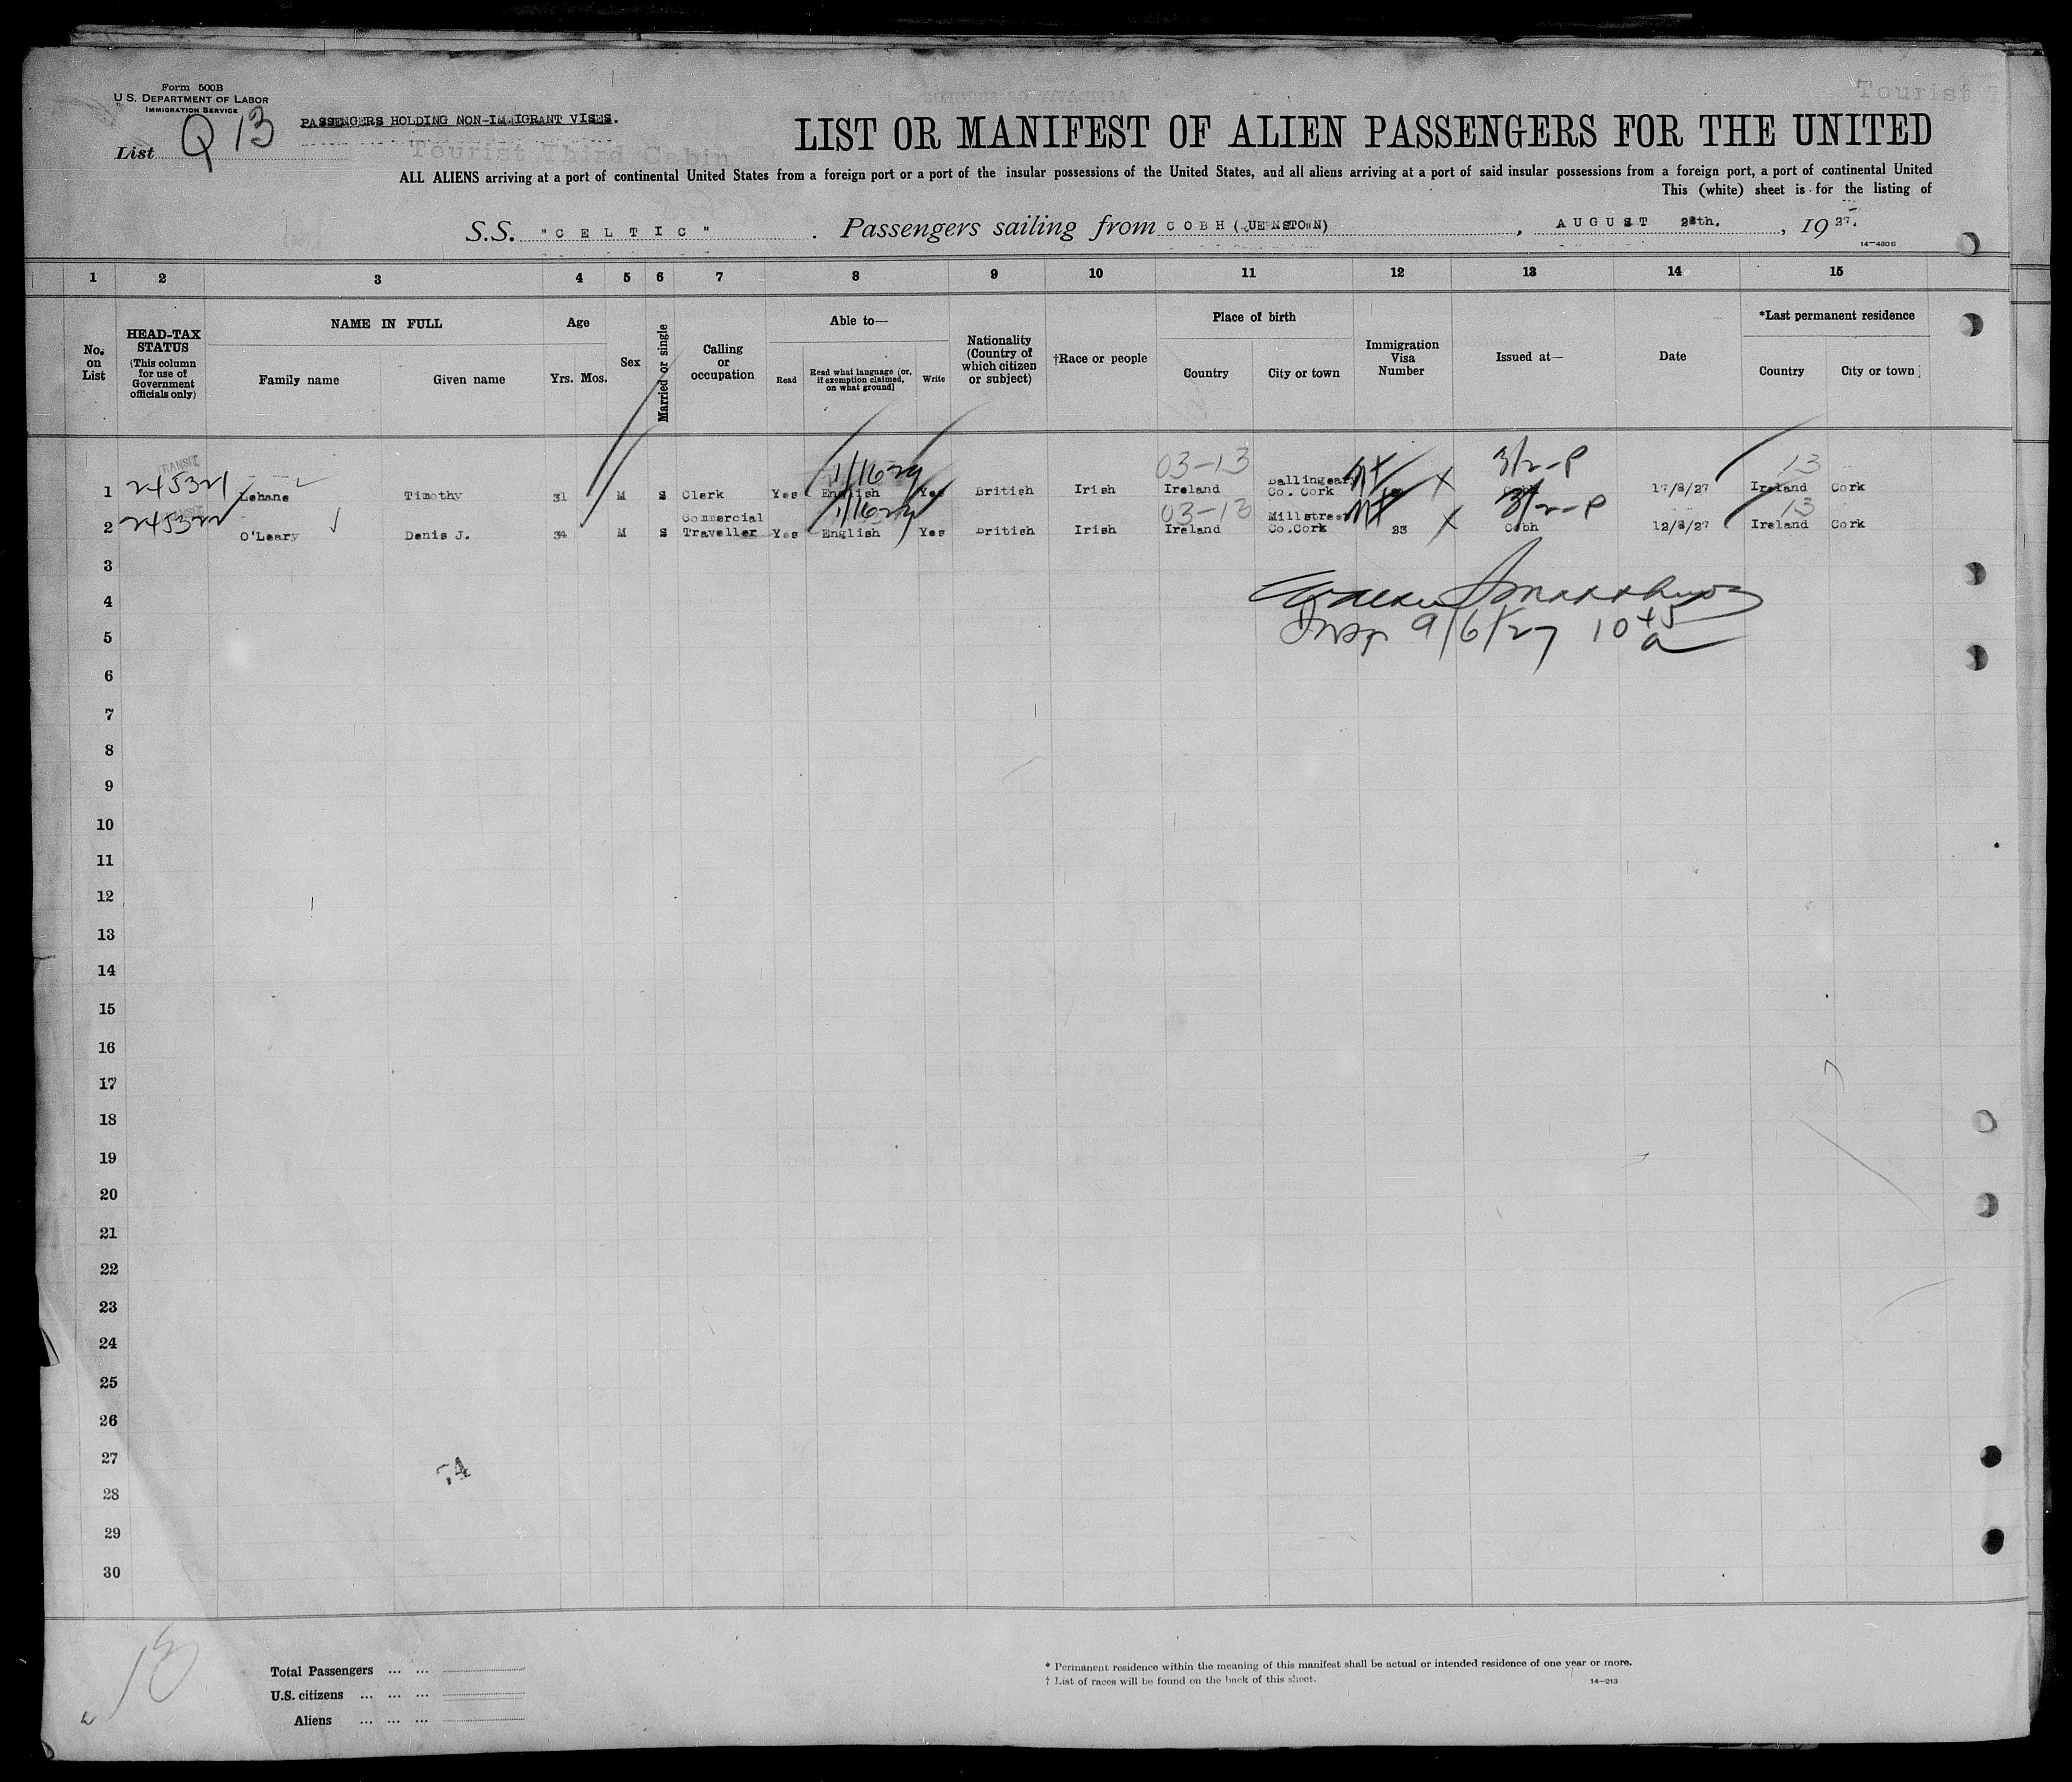 Form 500B
U.S. DEPARTMENT OF LABOR
IMMIGRATION SERVICE
List Q 13
PASSENGERS HOLDING NON-IMMIGRANT VISES.
Tourist Third Cabin
Tourist T
LIST OR MANIFEST OF ALIEN PASSENGERS FOR THE UNITED
ALL ALIENS arriving at a port of continental United States from a foreign port or a port of the insular possessions of the United States, and all aliens arriving at a port of said insular possessions from a foreign port, a port of continental United
This (white) sheet is for the listing of
S.S. "CELTIC". Passengers sailing from COBH (QUEENSTOWN), AUGUST 28th., 1927.
14—430B
1 2 3 4 5 6 7 8 9 10 11 12 13 14 15
No. on List
HEAD-TAX STATUS
(This column for use of Government officials only)
NAME IN FULL
Family name Given name
Age
Yrs. Mos.
Sex
Married or single
Calling or occupation
Able to—
Read
Read what language [or, if exemption claimed, on what ground]
Write
Nationality (Country of which citizen or subject)
†Race or people
Place of birth
Country City or town
Immigration Visa Number
Issued at—
Date
*Last permanent residence
Country City or town
TRANSIT
03-13 3/2-P 13
1 245321 Lehane Timothy 31 M S Clerk Yes English Yes British Irish Ireland Ballingeary Co. Cork Cobh 17/8/27 Ireland Cork
03-13 3/2-P 13
2 245322 O'Leary Denis J. 34 M S Commercial Traveller Yes English Yes British Irish Ireland Millstreet Co.Cork 23 Cobh 12/8/27 Ireland Cork
3
4
Insp 9/6/27 10 45 a
5
6
7
8
9
10
11
12
13
14
15
16
17
18
19
20
21
22
23
24
25
26
27
74
28
29
30
Total Passengers ... ...
U.S. citizens ... ... ...
Aliens ... ... ...
* Permanent residence within the meaning of this manifest shall be actual or intended residence of one year or more.
† List of races will be found on the back of this sheet.
14—213